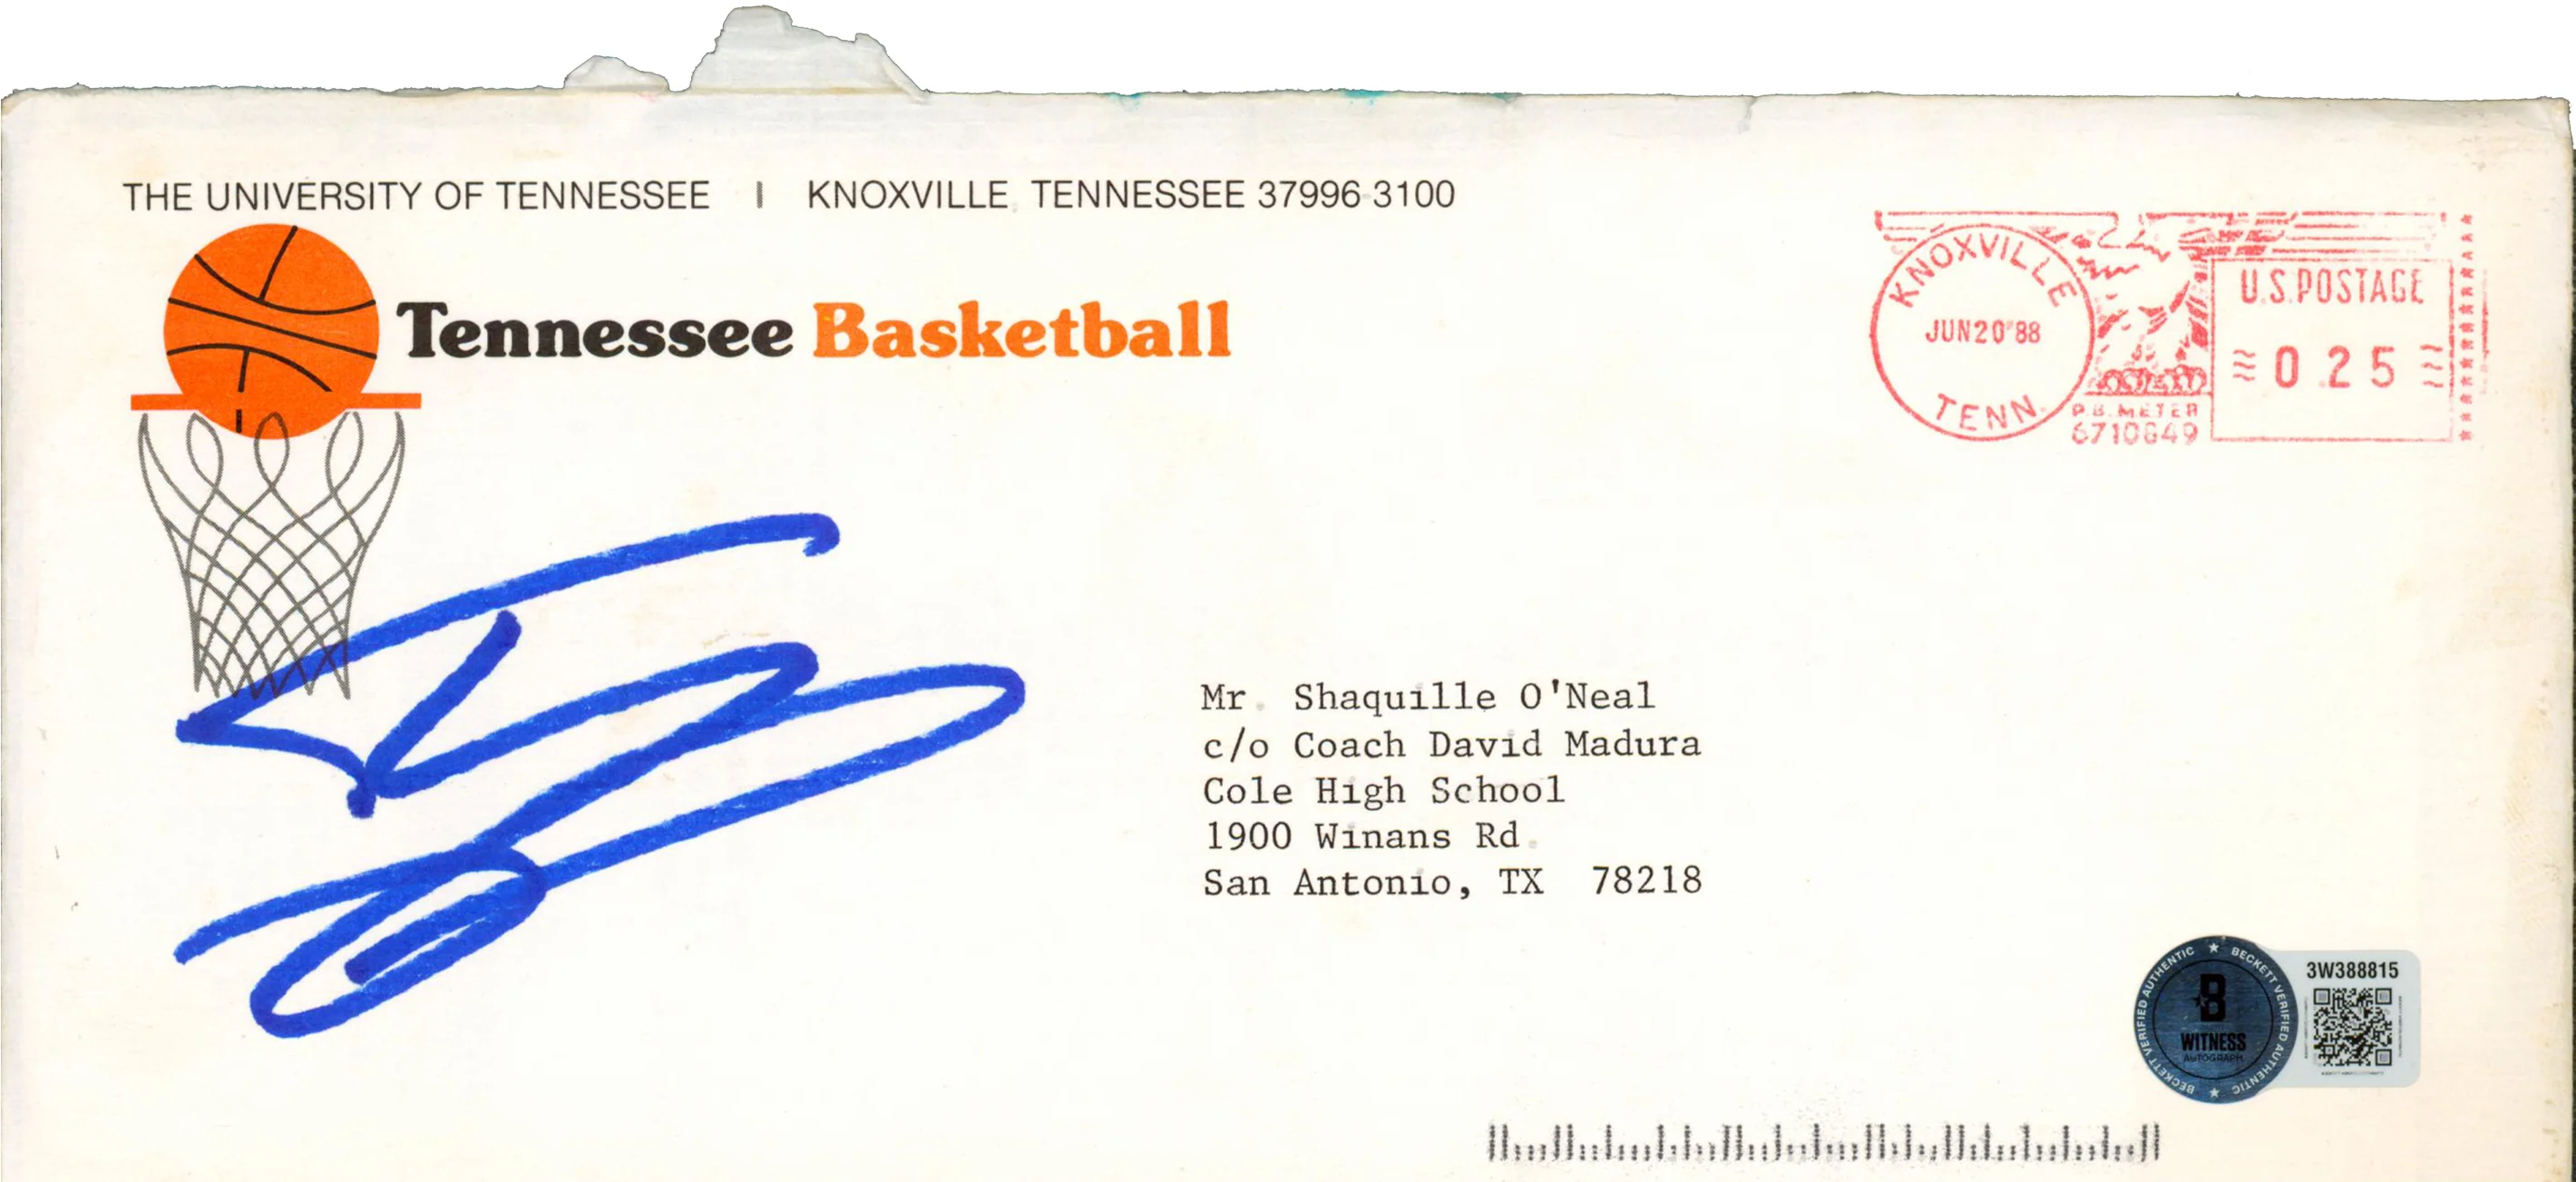 THE UNIVERSITY OF TENNESSEE | KNOXVILLE, TENNESSEE 37996-3100
Tennessee Basketball
KNOXVILLE
JUN 20 '88
TENN.
P.B. METER
U.S. POSTAGE
0.25
Mr. Shaquille O'Neal
c/o Coach David Madura
Cole High School
1900 Winans Rd.
San Antonio, TX 78218
BECKETT VERIFIED AUTHENTIC ★ BECKETT VERIFIED AUTHENTIC ★
B
WITNESS
AUTOGRAPH
3W388815